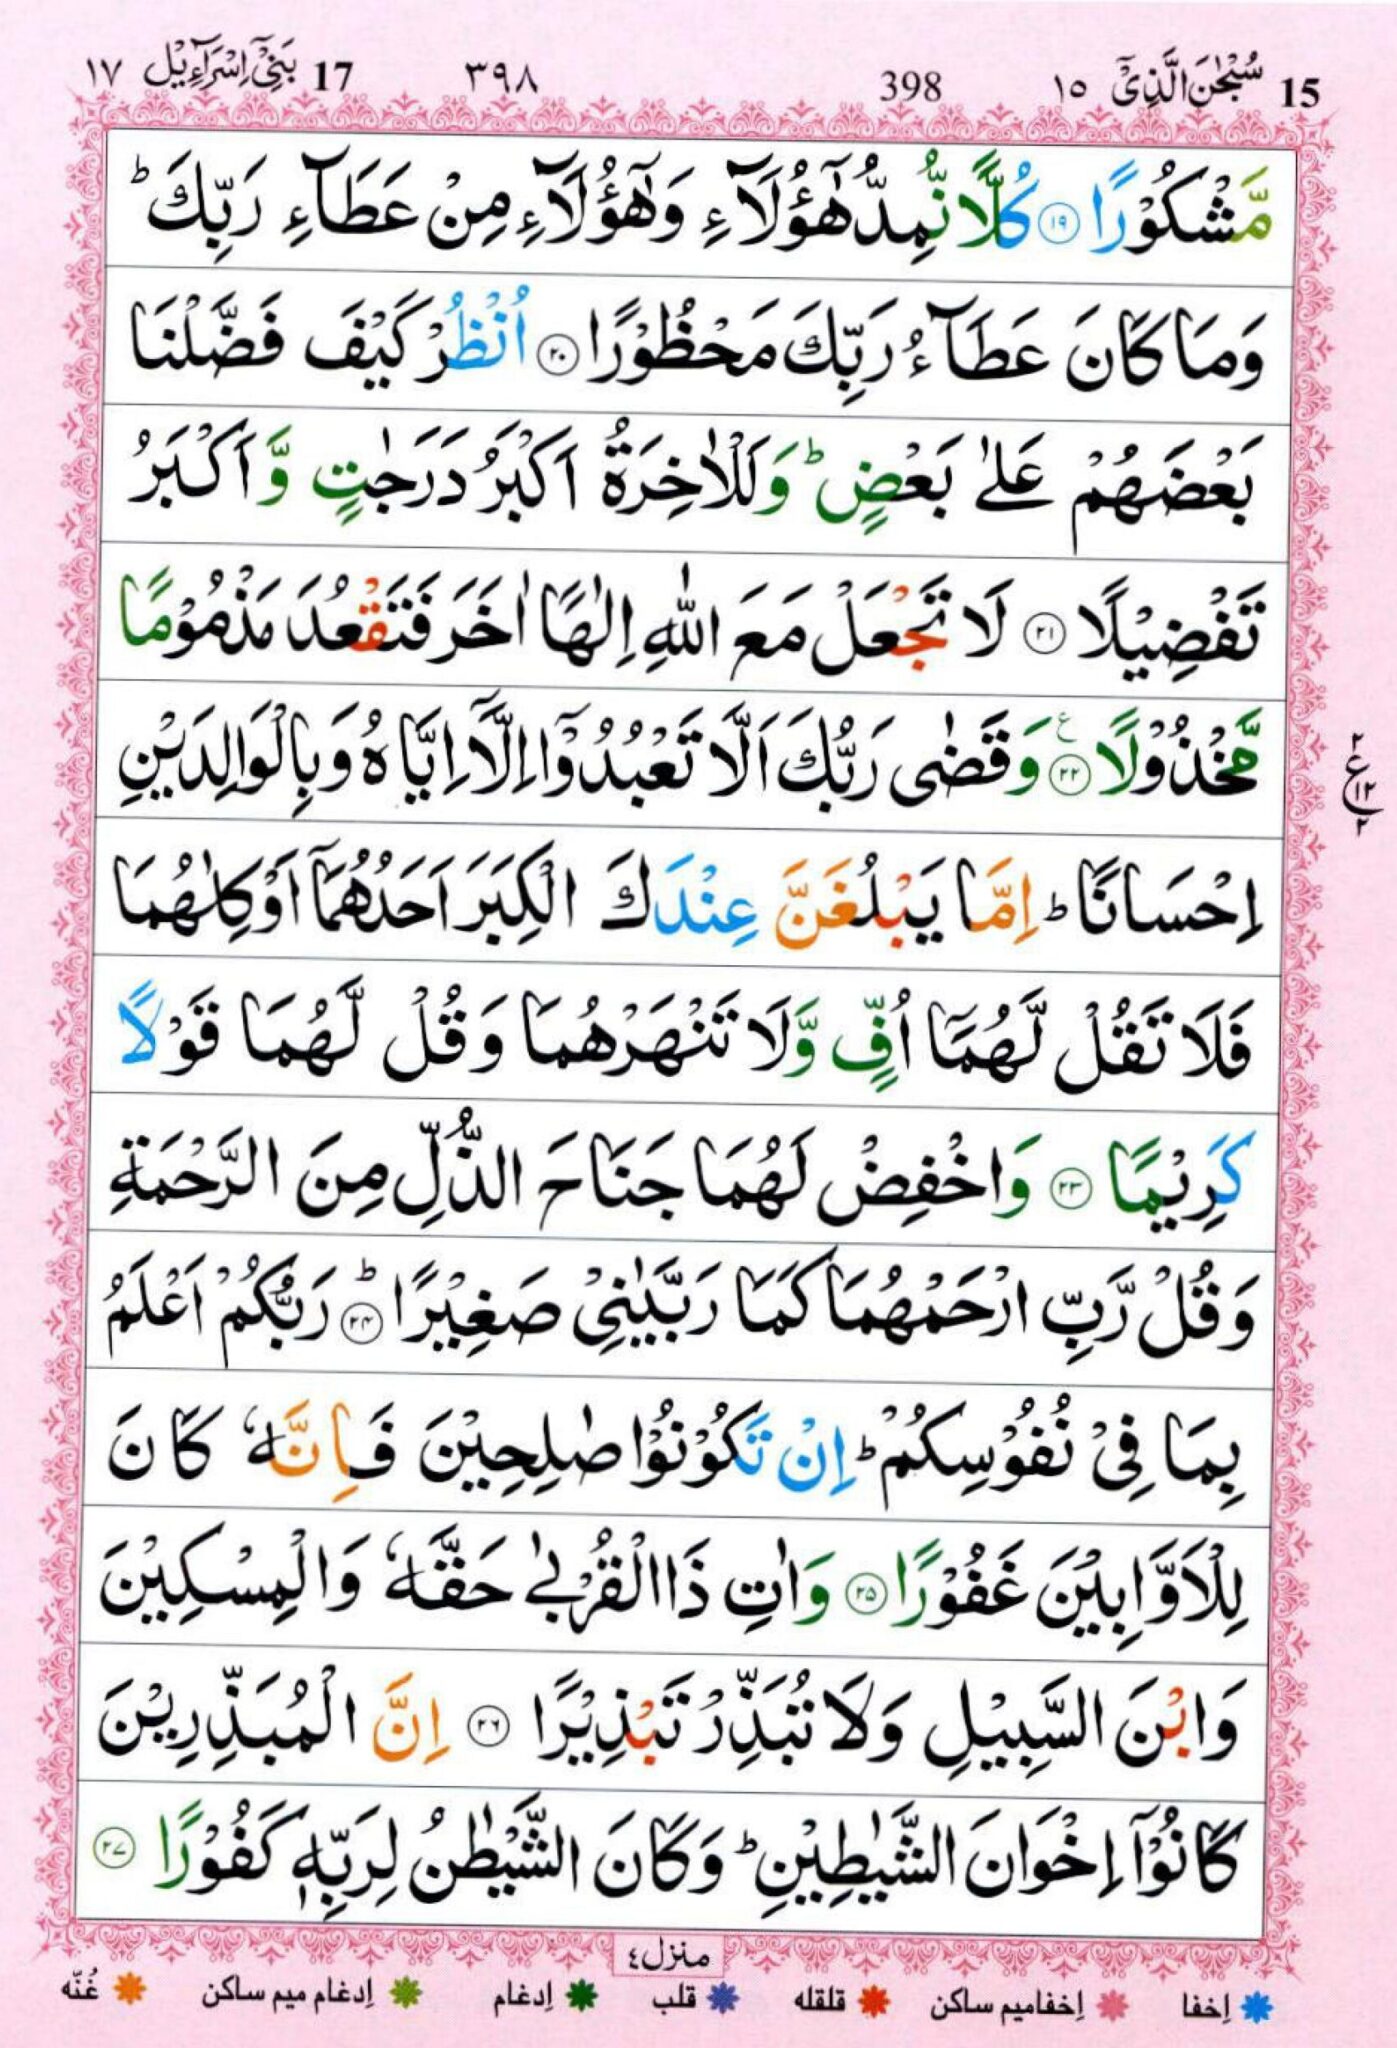 15 سُبْحٰنَ الَّذِیْۤ ١٥ 398 ٣٩٨ 17 بَنِیْۤ اِسْرَآءِیْل ١٧
مَّشْكُوْرًا ۝١٩ كُلًّا نُّمِدُّ هٰۤؤُلَآءِ وَهٰۤؤُلَآءِ مِنْ عَطَآءِ رَبِّكَ ؕ
وَمَا كَانَ عَطَآءُ رَبِّكَ مَحْظُوْرًا ۝٢٠ اُنْظُرْ كَیْفَ فَضَّلْنَا
بَعْضَهُمْ عَلٰی بَعْضٍ ؕ وَلَلْاٰخِرَةُ اَكْبَرُ دَرَجٰتٍ وَّاَكْبَرُ
تَفْضِیْلًا ۝٢١ لَا تَجْعَلْ مَعَ اللّٰهِ اِلٰهًا اٰخَرَ فَتَقْعُدَ مَذْمُوْمًا
مَّخْذُوْلًا ۝٢٢ؑ وَقَضٰی رَبُّكَ اَلَّا تَعْبُدُوْۤا اِلَّاۤ اِیَّاهُ وَبِالْوَالِدَیْنِ
٢
ع ١٢
٢
اِحْسَانًا ؕ اِمَّا یَبْلُغَنَّ عِنْدَكَ الْكِبَرَ اَحَدُهُمَاۤ اَوْكِلٰهُمَا
فَلَا تَقُلْ لَّهُمَاۤ اُفٍّ وَّلَا تَنْهَرْهُمَا وَقُلْ لَّهُمَا قَوْلًا
كَرِیْمًا ۝٢٣ وَاخْفِضْ لَهُمَا جَنَاحَ الذُّلِّ مِنَ الرَّحْمَةِ
وَقُلْ رَّبِّ ارْحَمْهُمَا كَمَا رَبَّیٰنِیْ صَغِیْرًا ۝٢٤ؕ رَبُّكُمْ اَعْلَمُ
بِمَا فِیْ نُفُوْسِكُمْ ؕ اِنْ تَكُوْنُوْا صٰلِحِیْنَ فَاِنَّهٗ كَانَ
لِلْاَوَّابِیْنَ غَفُوْرًا ۝٢٥ وَاٰتِ ذَا الْقُرْبٰی حَقَّهٗ وَالْمِسْكِیْنَ
وَابْنَ السَّبِیْلِ وَلَا تُبَذِّرْ تَبْذِیْرًا ۝٢٦ اِنَّ الْمُبَذِّرِیْنَ
كَانُوْۤا اِخْوَانَ الشَّیٰطِیْنِ ؕ وَكَانَ الشَّیْطٰنُ لِرَبِّهٖ كَفُوْرًا ۝٢٧
منزل٤
اِخفا اِخفامیم ساکن قلقله قلب اِدغام اِدغام میم ساکن غُنّه